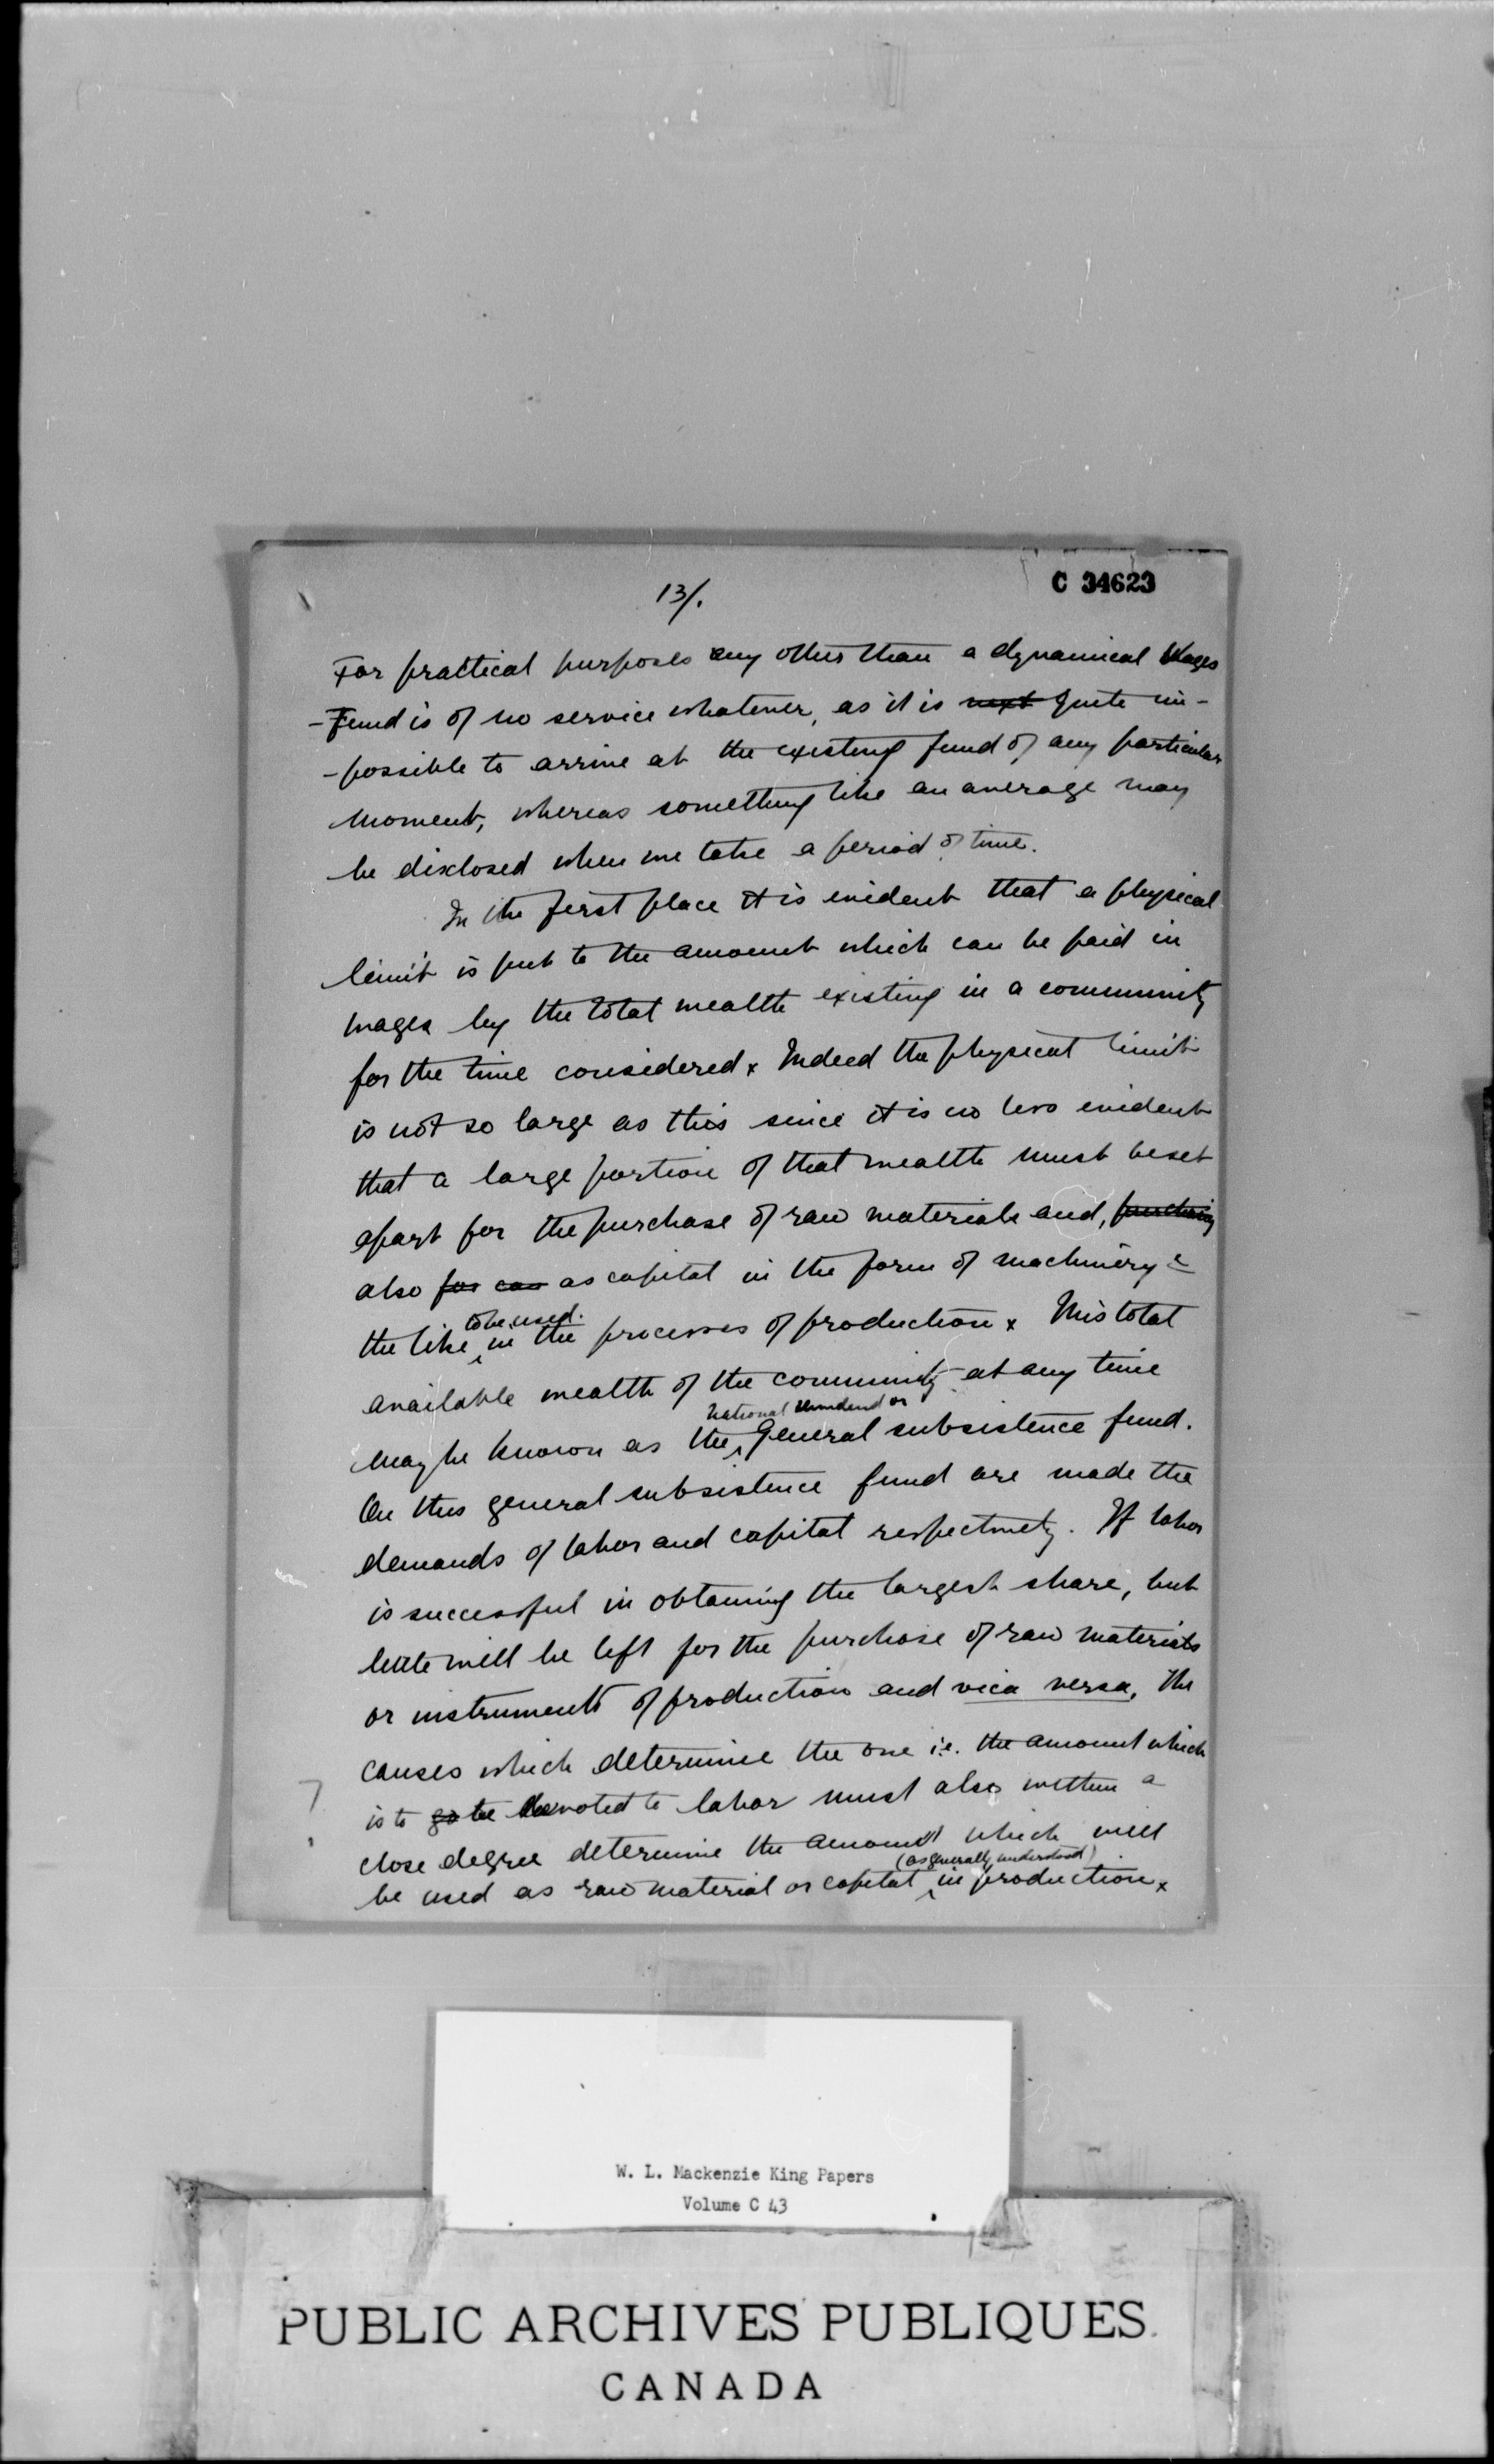 13/.
C 34623
For practical purposes any other than a dynamical Wages
-Fund is of no service whatever, as it is next quite im-
-possible to arrive at the existing fund of any particular
moment, whereas something like an average may
be disclosed when we take a period of time.
In the first place it is evident that a physical
limit is put to the amount which can be paid in
wages by the total wealth existing in a community
for the time considered x Indeed the physical limit
is not so large as this since it is no less evident
that a large portion of that wealth must be set
apart for the purchase of raw materials and, purchasing
also for cap as capital in the form of machinery &
to be used.
the like in the processes of production x This total
available wealth of the community at any time
national dividend or
may be known as the general subsistence fund.
On this general subsistence fund are made the
demands of labor and capital respectively. If labor
is successful in obtaining the largest share, but
little will be left for the purchase of raw materials
or instruments of production and vica versa, The
causes which determine the one i.e. the amount which
is to go be devoted to labor must also within a
close degree determine the amount which will
(as generally understood)
be used as raw material or capital in production x
W. L. Mackenzie King Papers
Volume C 43
PUBLIC ARCHIVES PUBLIQUES
CANADA